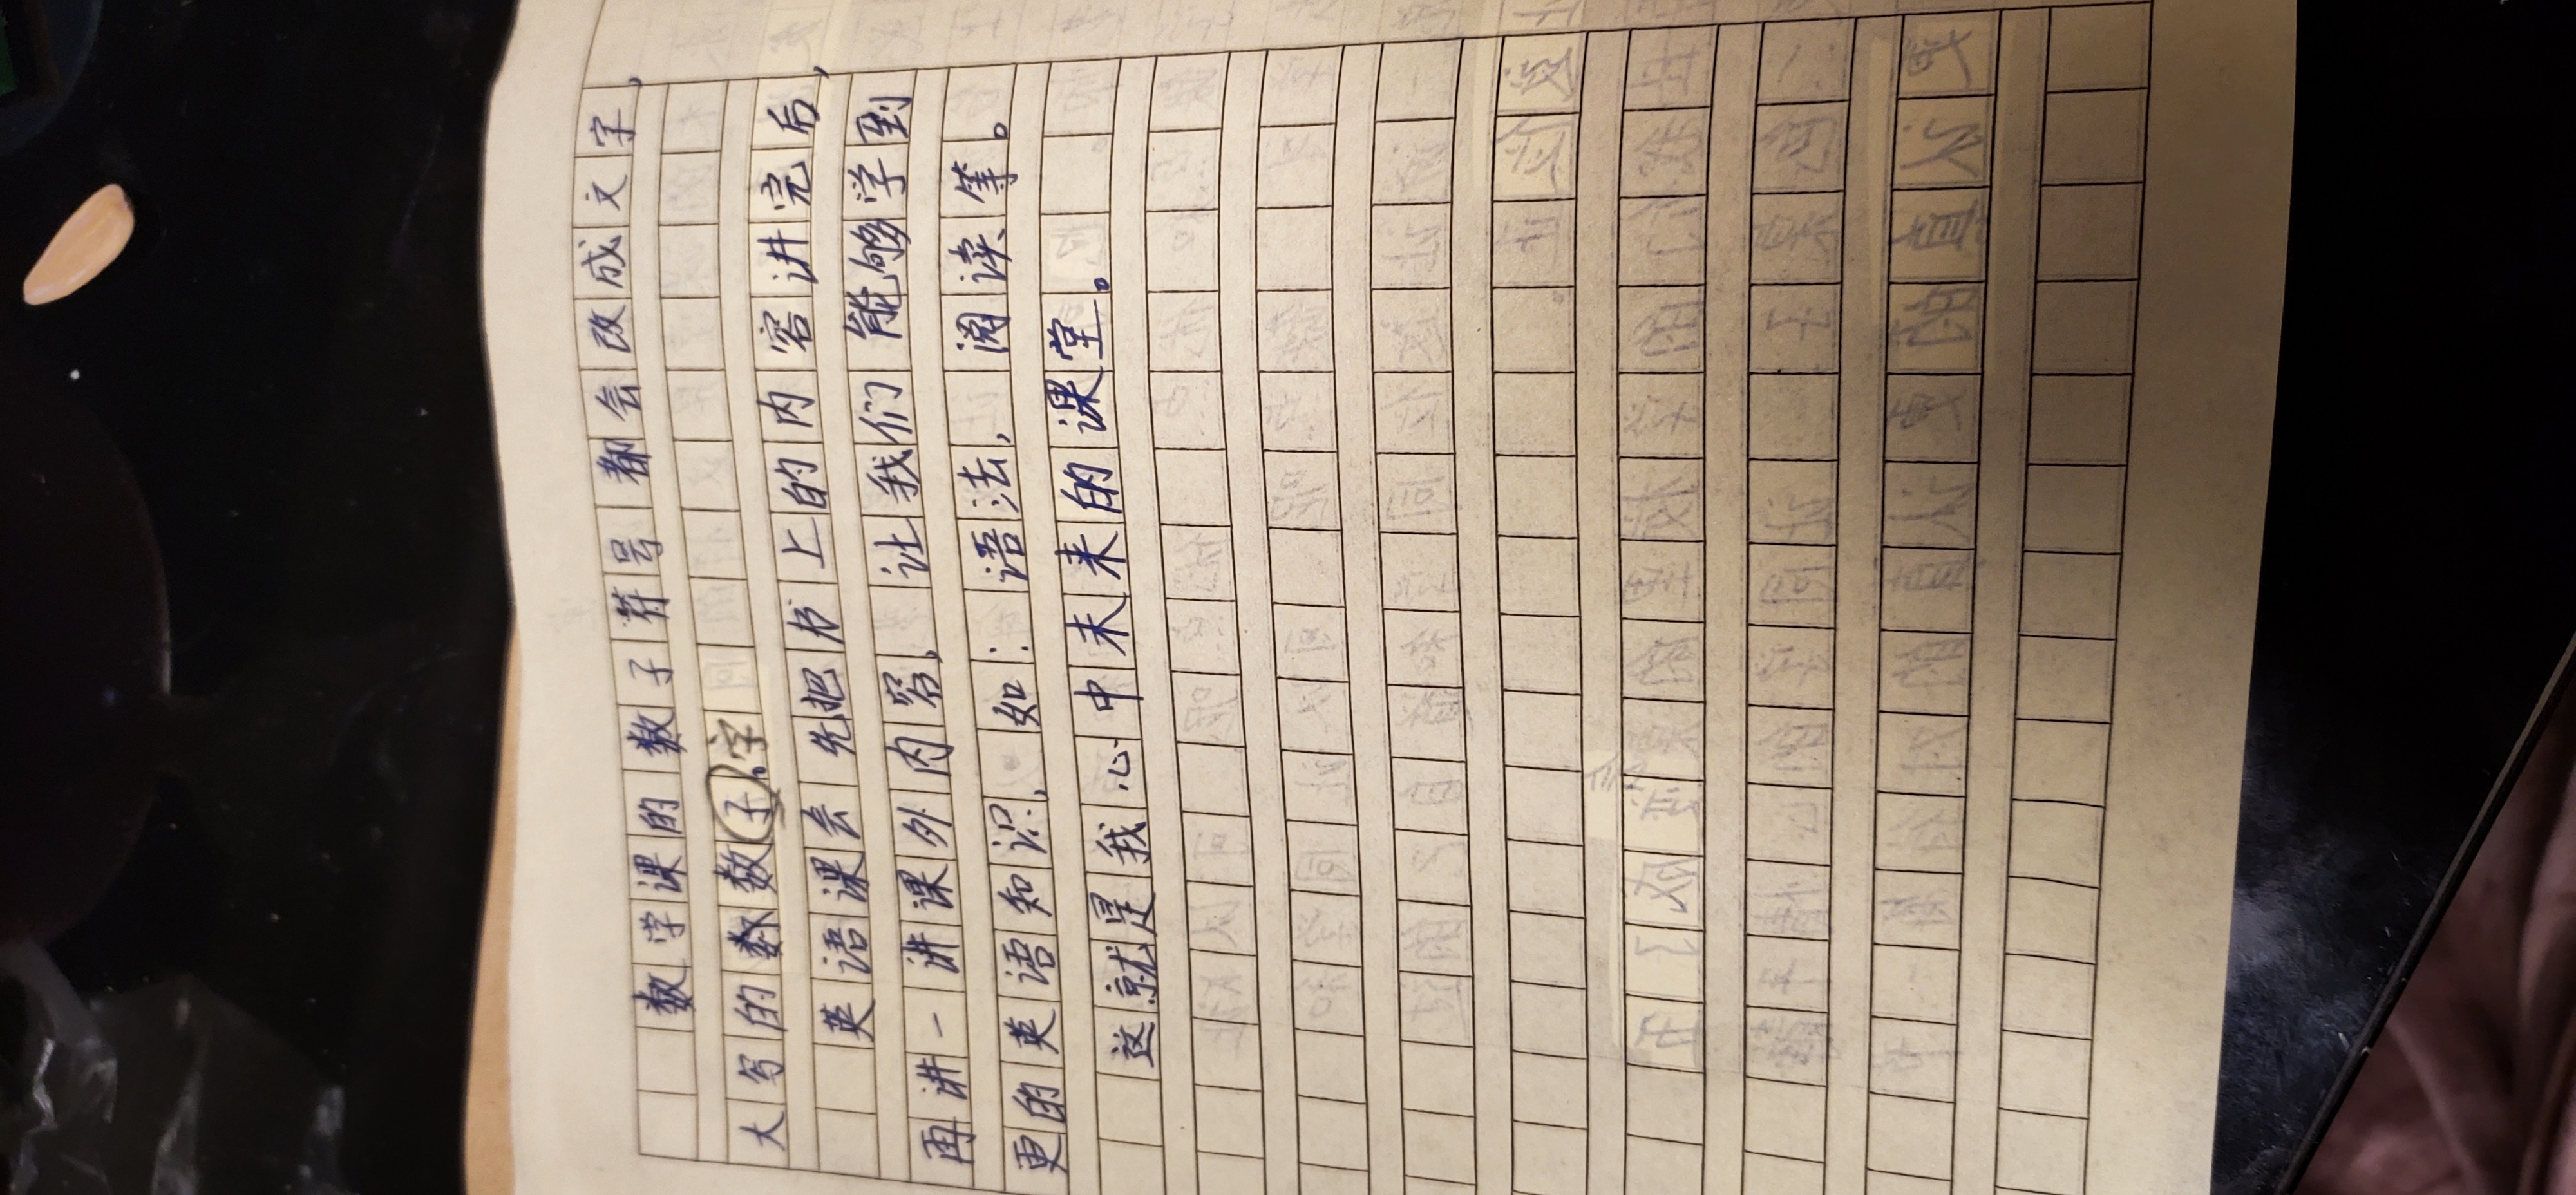 数学课的数子符号都会改成文字，
大写的数数子。字
英语课会先把书上的内容讲完后，
再讲一讲课外内容，让我们能够学到
更的英语知识，如：语法，阅读等。
这就是我心中未来的课堂。